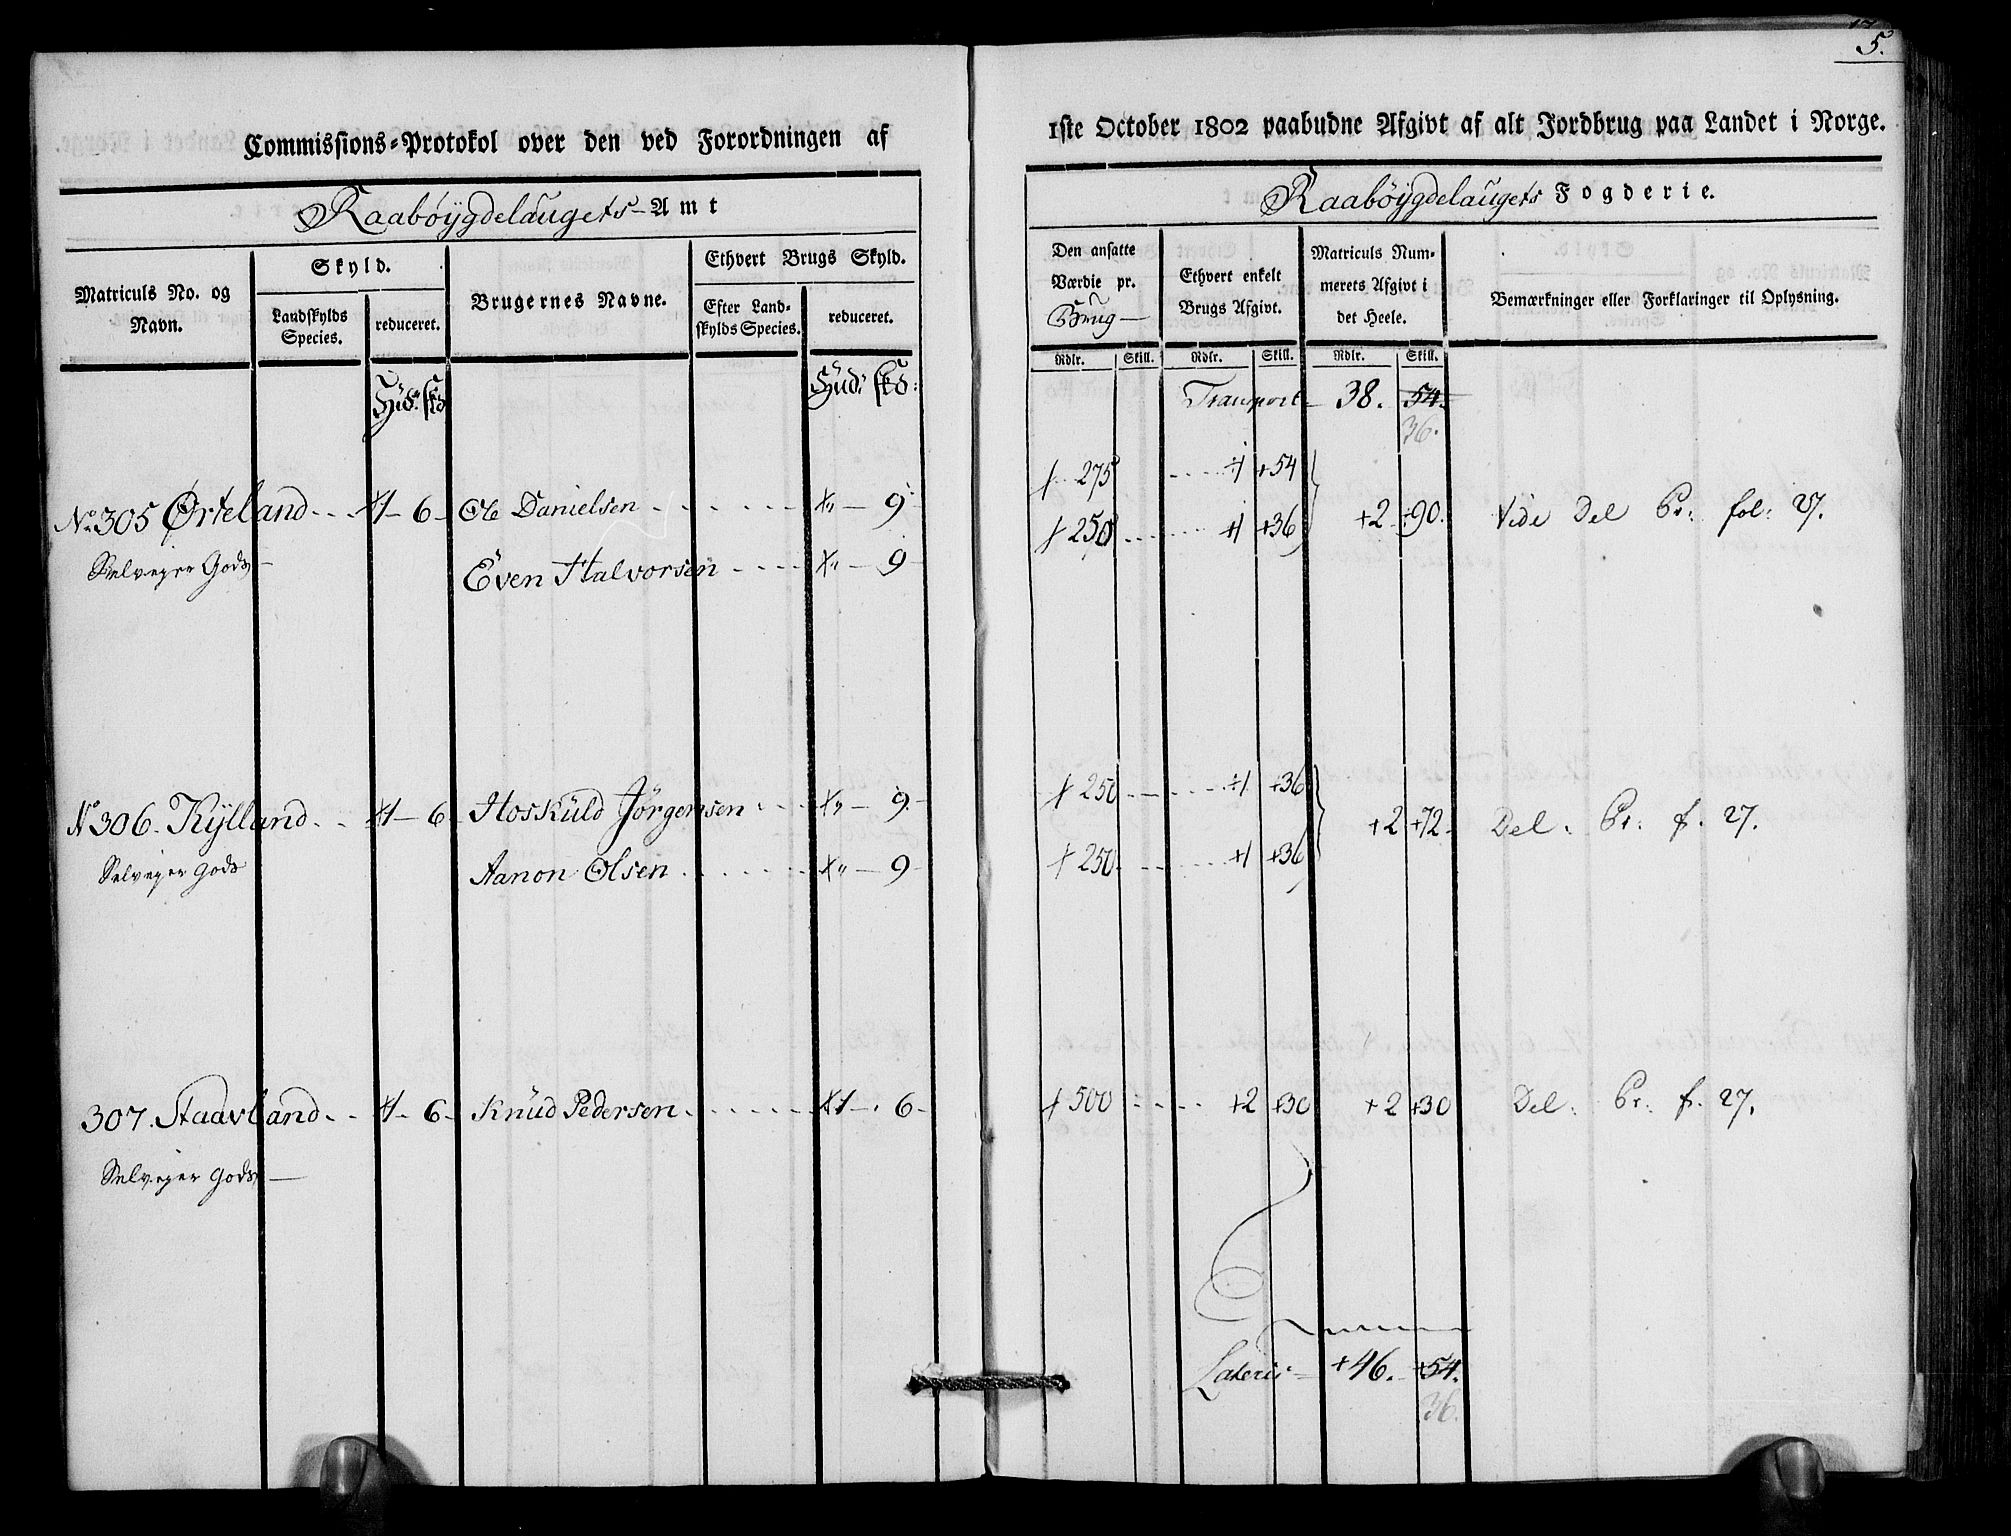 5.
Commissions-Protokol over den ved Forordningen af
1ste October 1802 paabudne Afgivt af alt Jordbrug paa Landet i Norge.
Raabøygdelaugets Amt
Raabøygdelaugets Fogderie.
Matriculs No. og Navn.
Skyld.
Landskylds Species.
reduceret.
Brugernes Navne.
Ethvert Brugs Skyld.
Efter Landskylds Species.
reduceret.
Den ansatte Værdie pr. Brug
Ethvert enkelt Brugs Afgivt.
Matriculs Nummerets Afgivt i det Heele.
Bemærkninger eller Forklaringer til Oplysning.
Rdlr. Skill. Rdlr. Skill. Rdlr. Skill.
Hud: skd
Hud: skd:
Transport 38. 54.
36.
No 305 Ørteland 1 6 Ole Danielsen " 9 275 1 +54
Selveyer Gods Even Halvorsen " 9 +250 +1 +36 +2 +90. Vide Del Pr: fol: 27.
No 306. Kylland 1 6 Hoskuld Jørgensen " 9 +250 +1 +36
Selveyer Gods Aanon Olsen " 9 +250 +1 +36 +2 +72 Del: Pr: f. 27.
307. Staavland 1 6 Knud Pedersen 1 6 +500 +2 +30 +2 +30 Del: Pr: f. 27.
Selveyer Gods
Lateris +46. +54.
36.